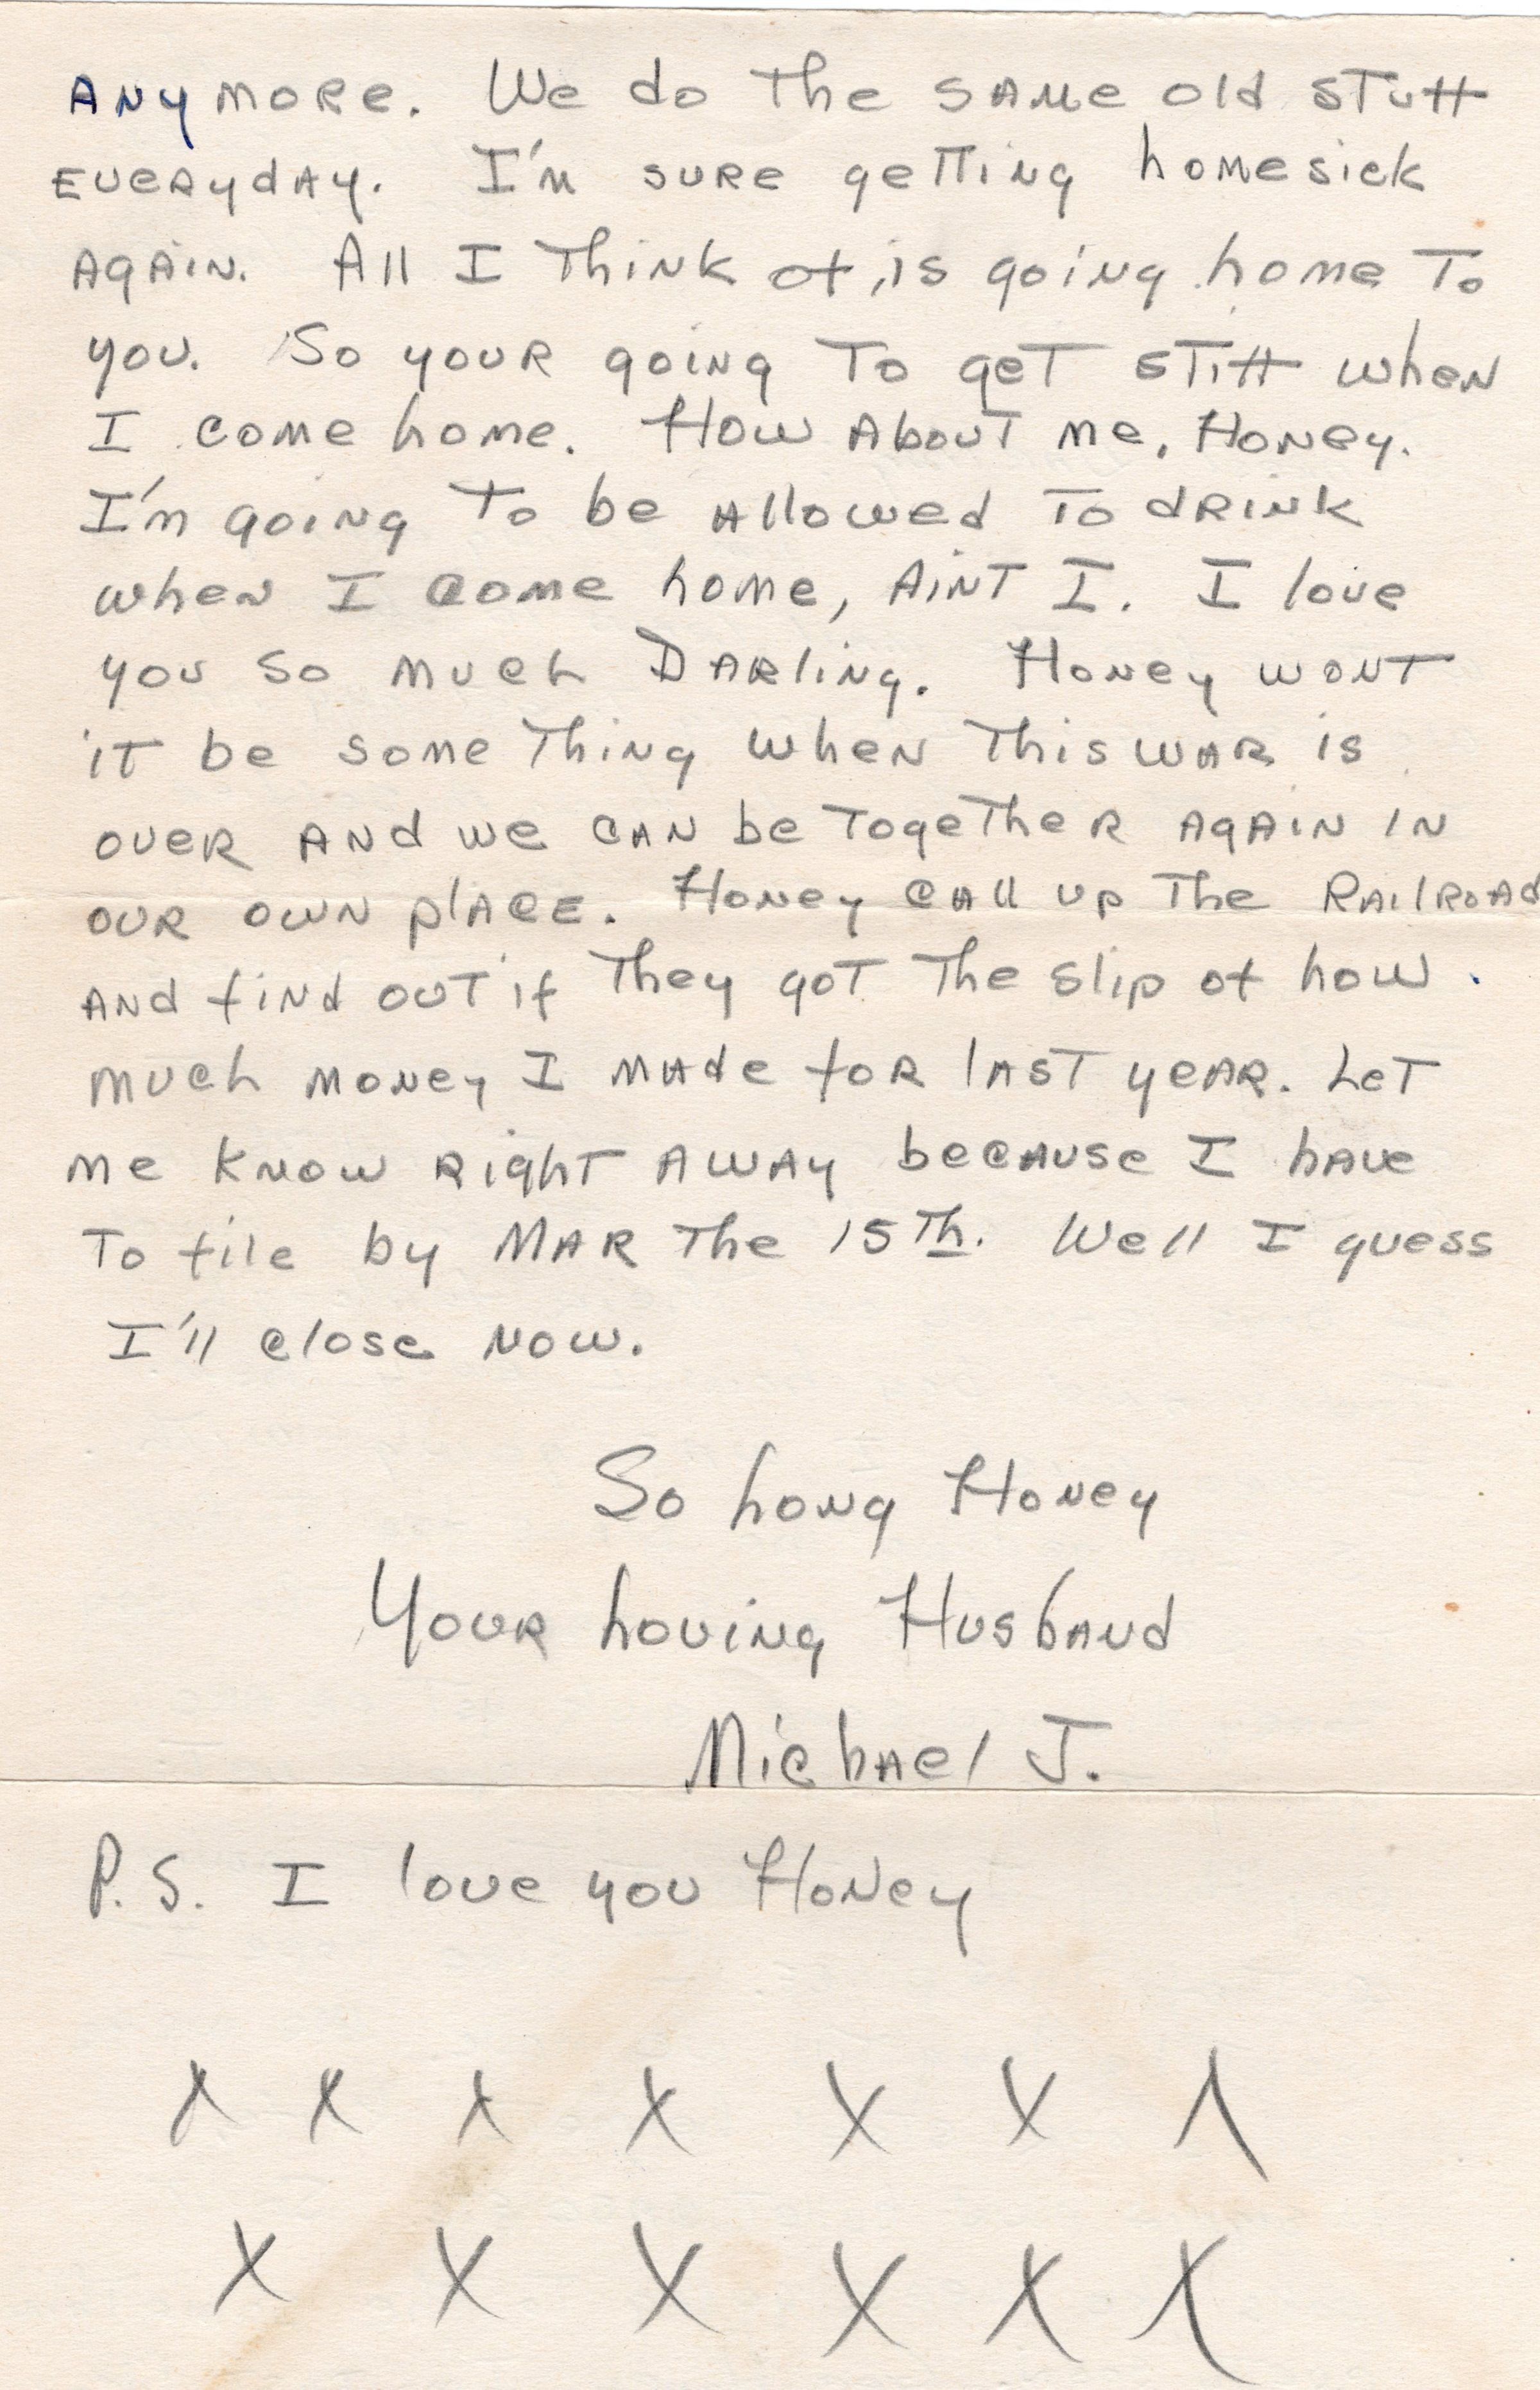 Anymore. We do the same old stuff
everyday. I'm sure getting homesick
again. All I think of, is going home to
you. So your going to get stiff when
I come home. How about me, Honey.
I'm going to be allowed to drink
when I come home, aint I. I love
you so much Darling. Honey wont
it be some thing when this war is
over and we can be together again in
our own place. Honey call up the Railroad
and find out if they got the slip of how
much money I made for last year. Let
me know right away because I have
to file by Mar the 15th. Well I guess
I'll close now.
So Long Honey
Your Loving Husband
Michael J.
P.S. I love you Honey
X X X X X X X
X X X X X X